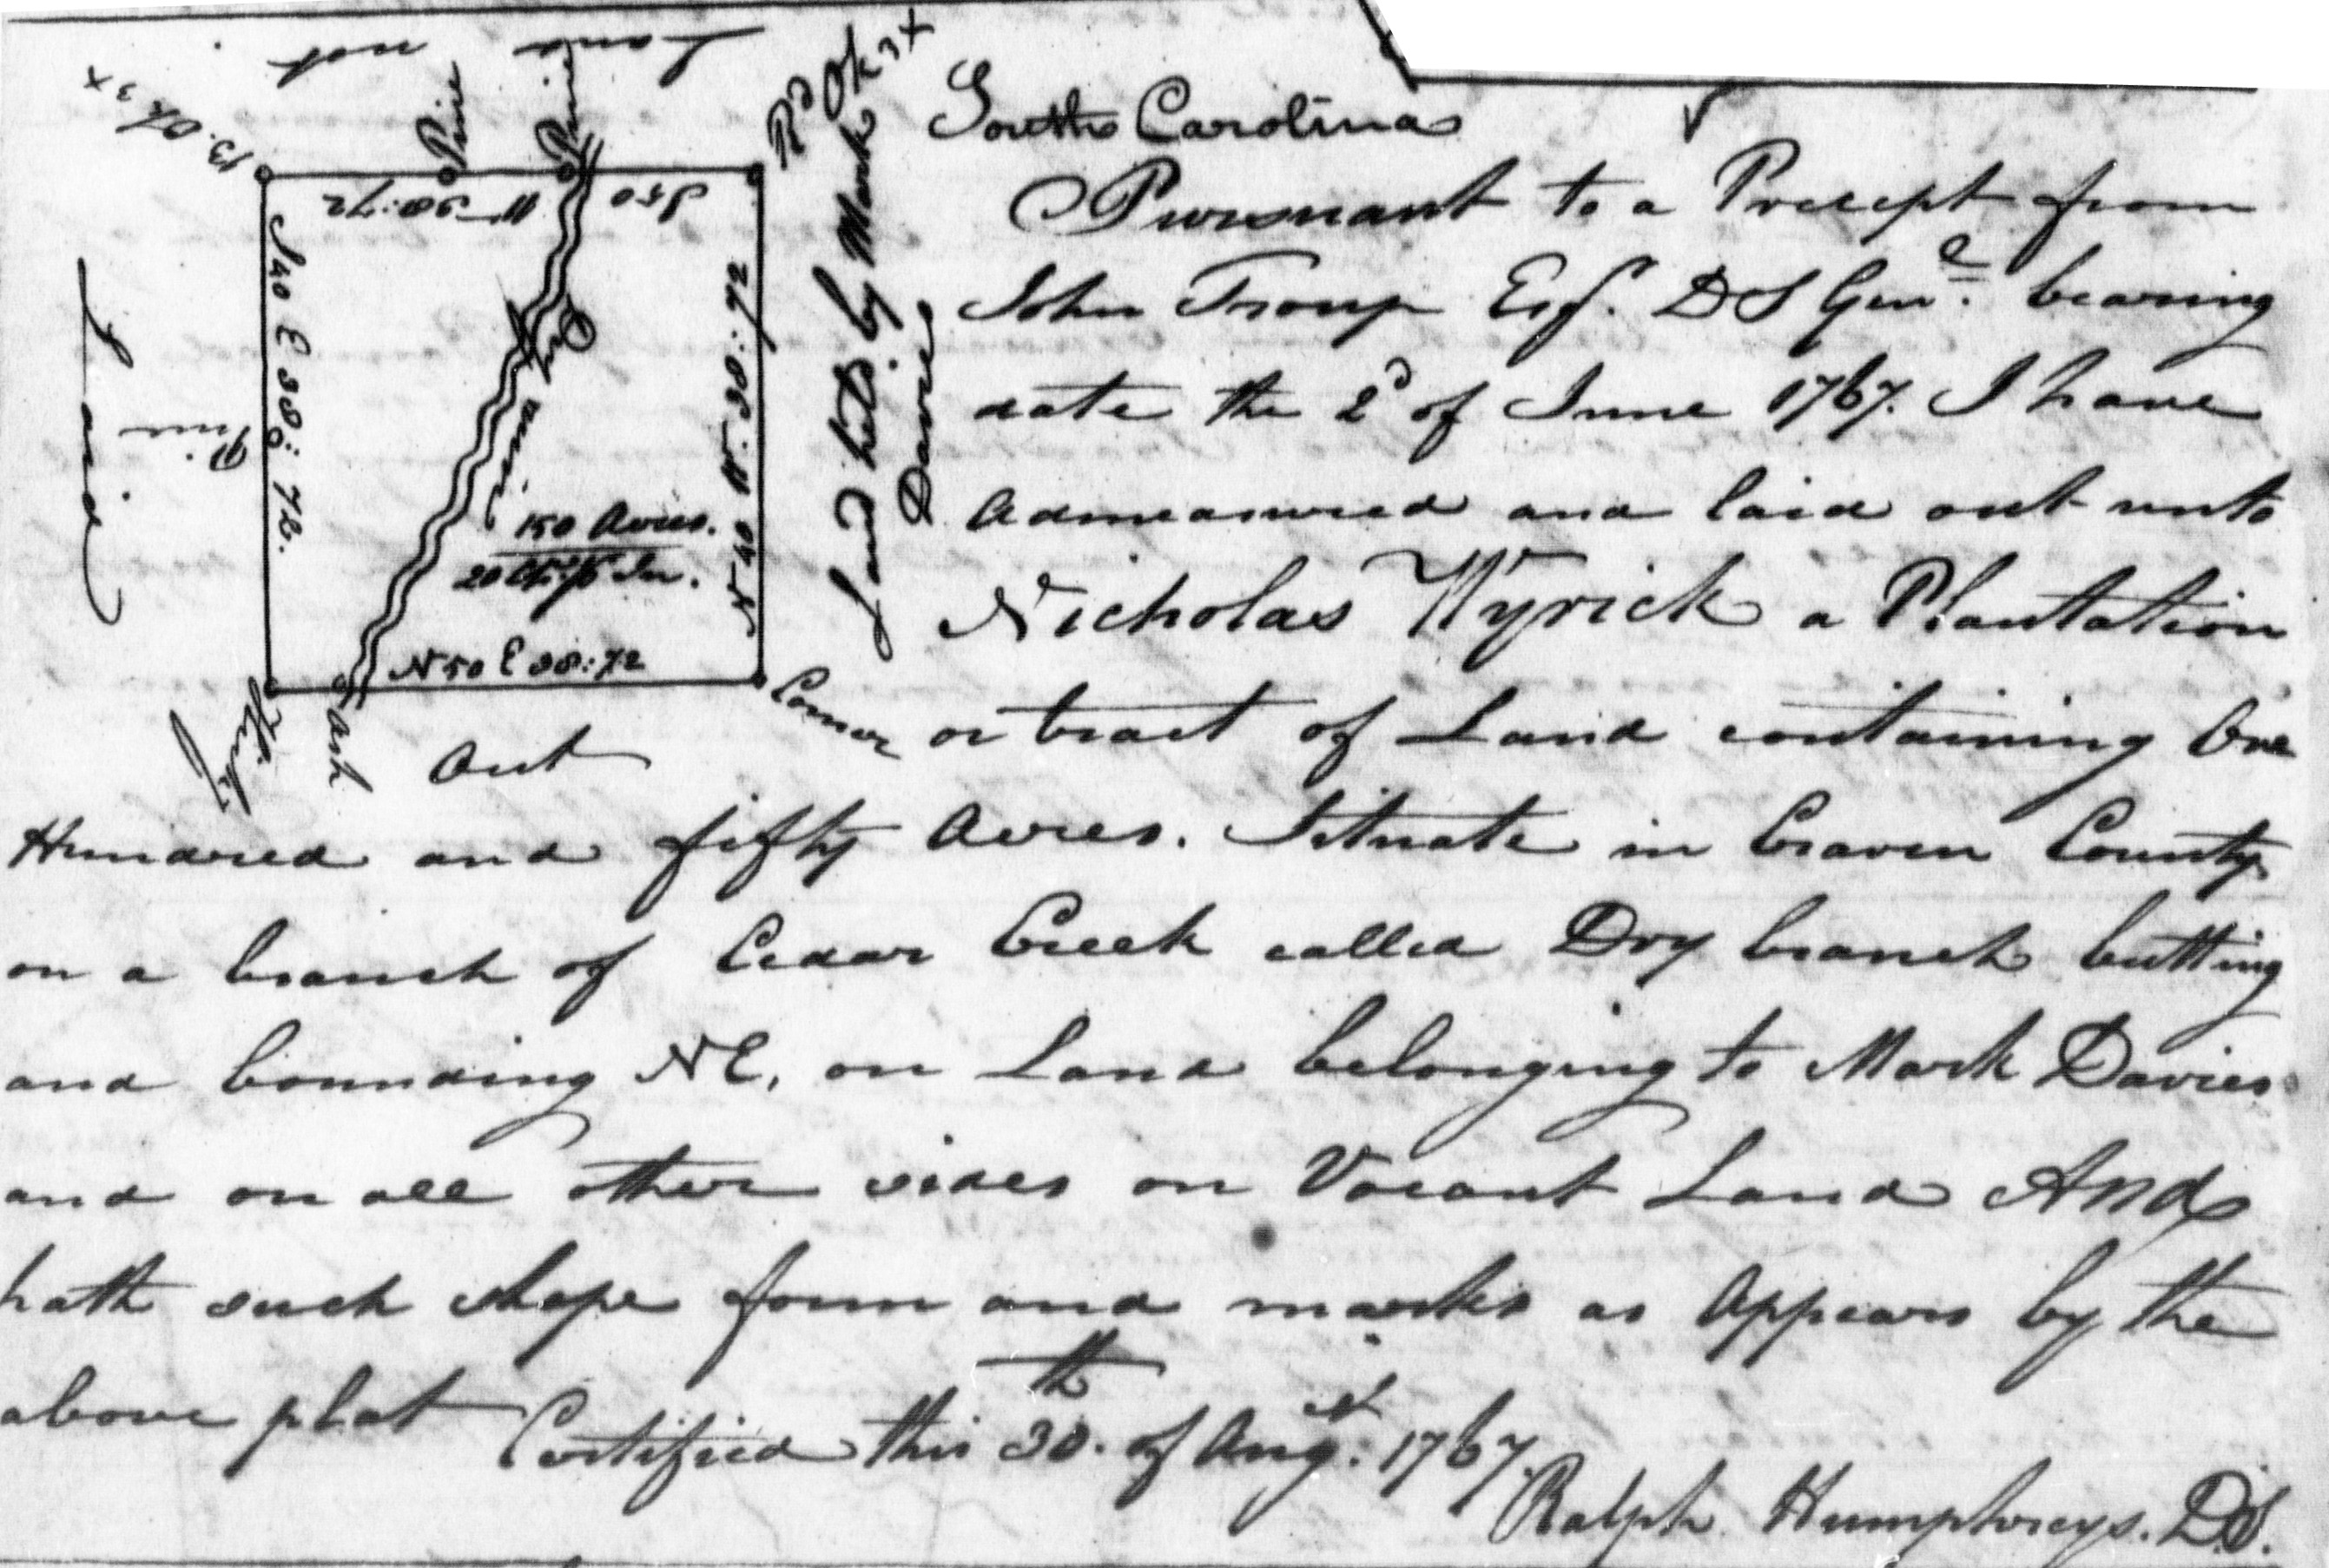 Land not
B. Ok 3 x
Pine
Pine
Rd Ok 3 x
S 50 W 38:72
S 40 E 38:72.
N 40 W. 38:72
N 50 E 38:72
Land
Pine
Dry
150 Acres.
20 Chs. pr In.
Land held by Mark
Davies
Corner
Hicky
Ash
Out
South Carolina
Pursuant to a Precept from
John Troup Esqr. D S Genl. bearing
date the 2d of June 1767. I have
admeasured and laid out unto
Nicholas Wyrick a Plantation
or tract of Land containing One
Hundred and fifty Acres. Situate in Craven County
on a branch of Cedar Creek called Dry branch butting
and bounding NE, on Land belonging to Mark Davies
and on all other sides on Vacant Land And
hath such shape form and marks as Appears by the
above plat Certified this 30th. of Augst. 1767.
Ralph Humphreys. D.S.